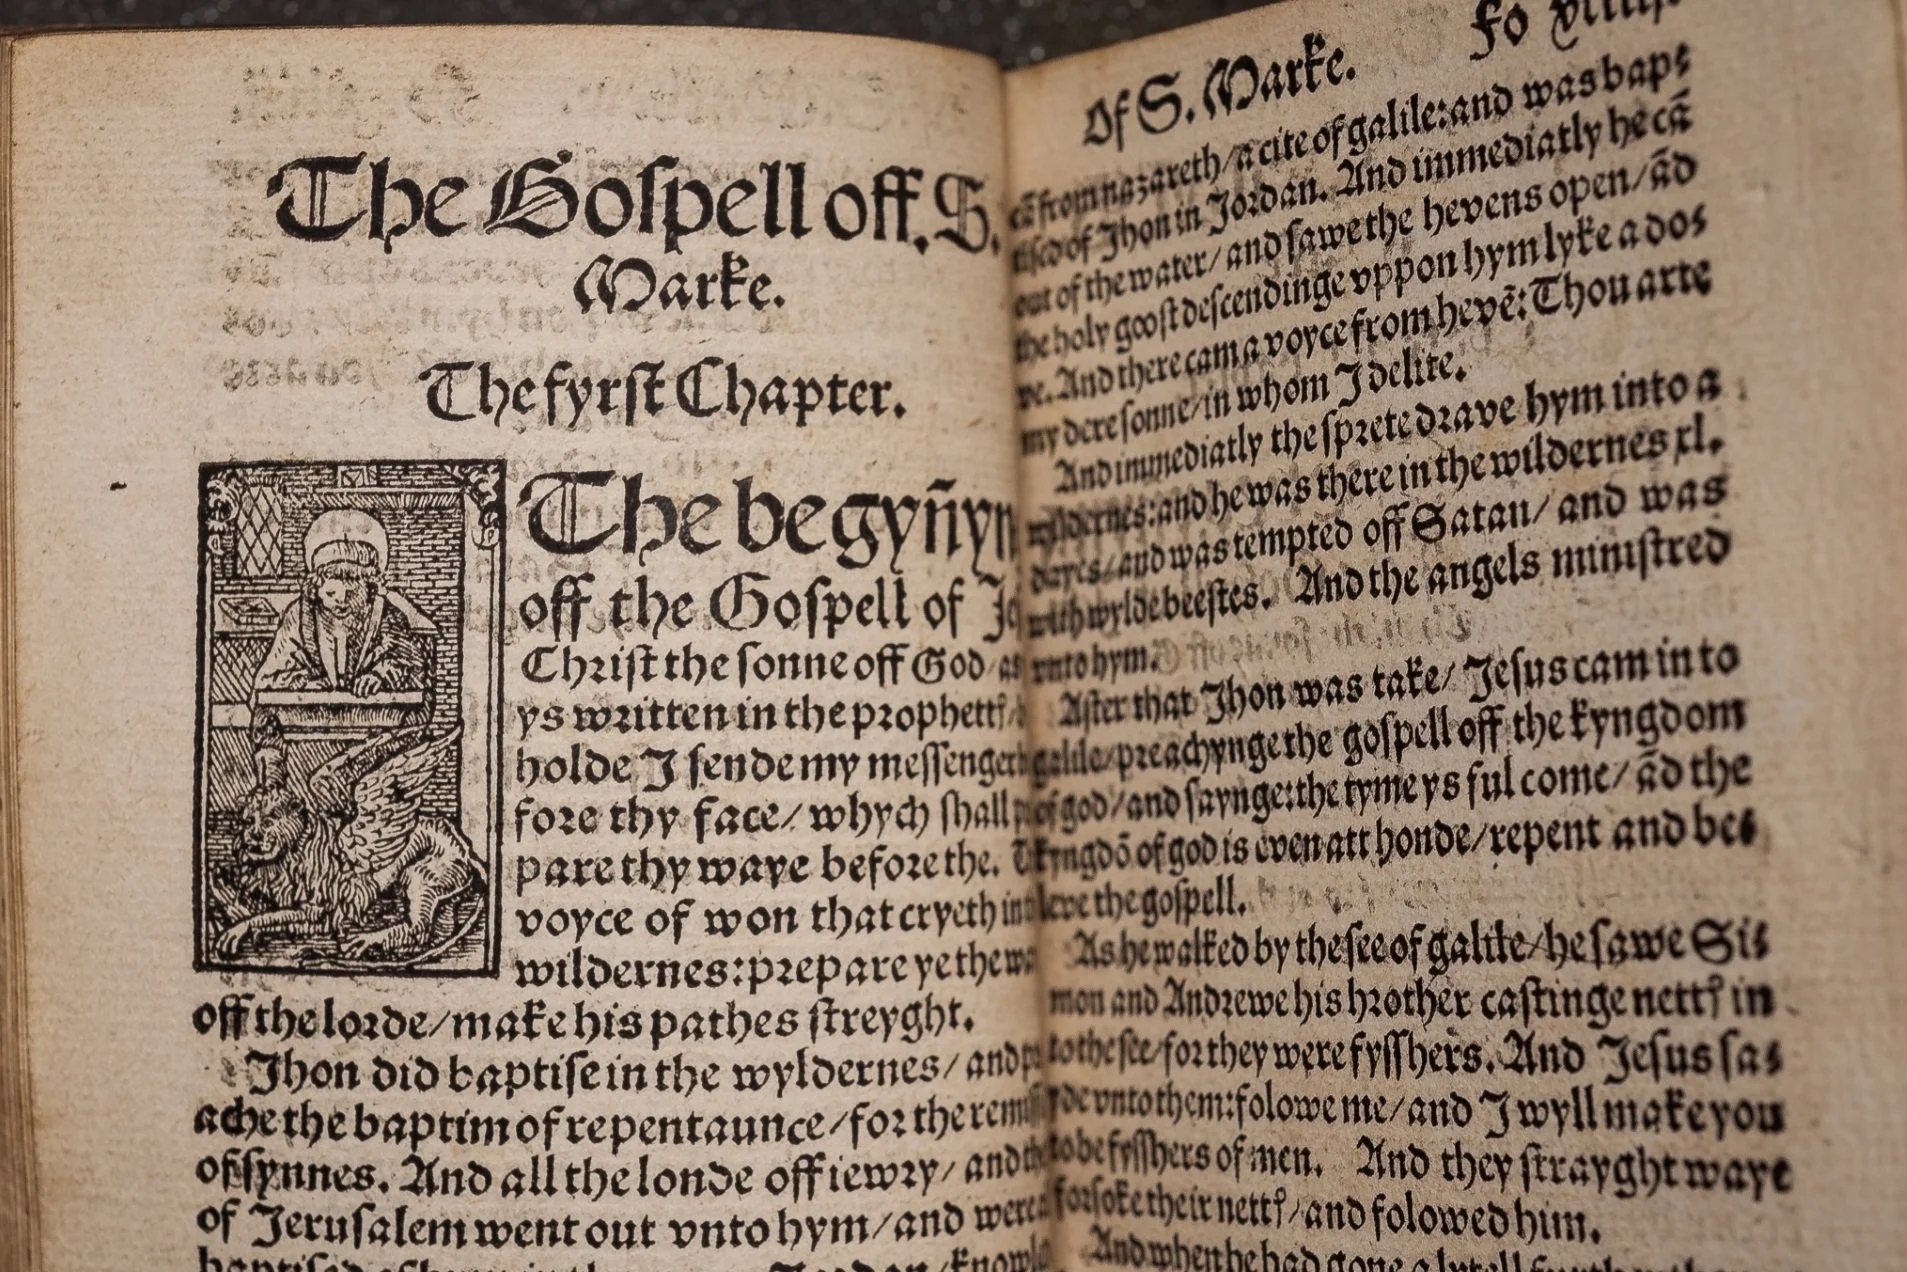 The Gospell off. S.
Marke.
The fyrst Chapter.
The begyñyn
off the Gospell of
Christ the sonne off God
ys written in the prophettꝭ
holde I sende my messenger
fore thy face/ whych shall
pare thy waye before the.
voyce of won that cryeth in
wildernes: prepare ye the
off the lorde/ make his pathes streyght.
Jhon did baptise in the wyldernes/ and
ache the baptim of repentaunce/ for the
of synnes. And all the londe off iewry/ and
of Jerusalem went out vnto hym/ and were
Of S. Marke. Fo
cā from nazareth/ a cite of galile: and was bap⸗
tised of Jhon in Jordan. And immediatly he cā
out of the water/ and sawe the hevens open/ ād
the holy goost descendinge vppon hym lyke a do⸗
ve. And there cam a voyce from hevē: Thou arte
my dere sonne/ in whom I delite.
And immediatly the sprete drave hym into a
wyldernes: and he was there in the wildernes xl.
dayes/ and was tempted off Satan/ and was
with wylde beestes. And the angels ministred
vnto hym.
After that Jhon was take/ Jesus cam in to
galile/ preachynge the gospell off the kyngdom
of god/ and saynge: the tyme ys ful come/ ād the
kyngdō of god is even att honde/ repent and be⸗
leve the gospell.
As he walked by the see of galile/ he sawe Si⸗
mon and Andrewe his brother castinge nettꝭ in
to the see/ for they were fysshers. And Jesus sa⸗
yde vnto them: folowe me/ and I wyll make you
to be fysshers of men. And they strayght waye
forsoke their nettꝭ/ and folowed him.
And when he had gone a lytell